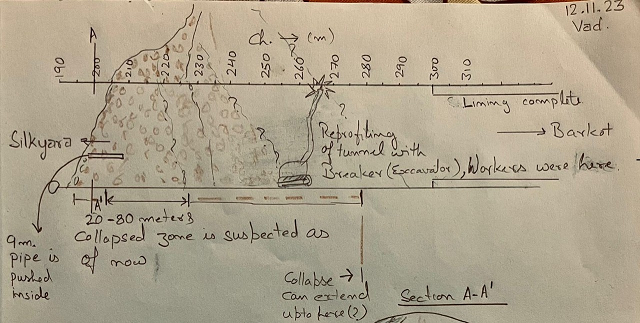 12.11.23
Vad.
A
Ch. → (m)
190 200 210 220 230 240 250 260 270 280 290 300 310
Lining complete
Silkyara
→ Barkot
?
Reprofiling
of tunnel with
Breaker (Excavator), Workers were here.
A'
20-80 meters
Collapsed zone is suspected as
of now
9m.
pipe is
pushed
inside
Collapse →
can extend
upto here (?)
Section A-A'